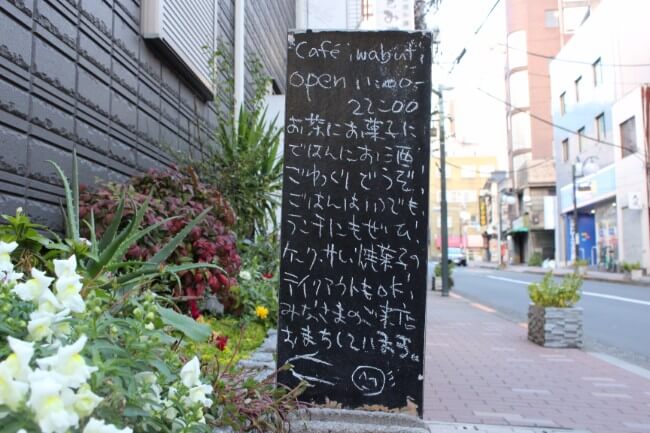 Café iwabuti
open 11:00~
22:00
お茶にお菓子に
ごはんにお酒
ごゆっくりどうぞ。
ごはんはいつでも、
ランチにもぜひ、
ケーク・サレ、焼菓子の
テイクアウトもOK、
みなさまのご来店
おまちしています。